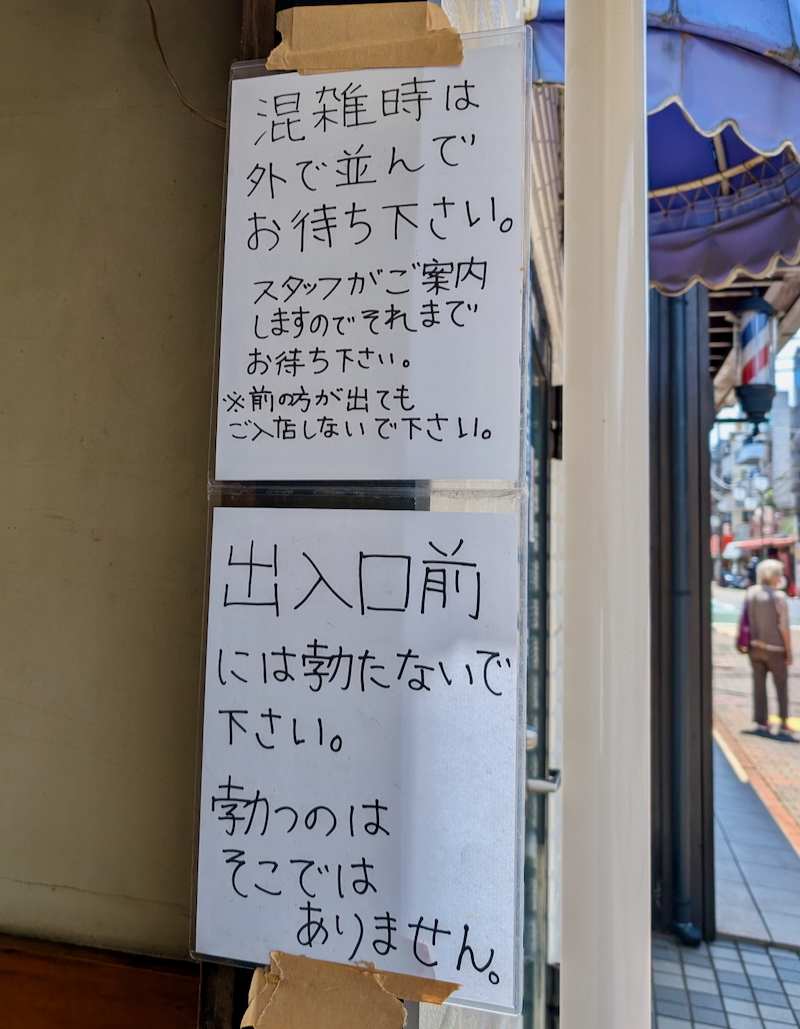 混雑時は
外で並んで
お待ち下さい。
スタッフがご案内
しますのでそれまで
お待ち下さい。
※前の方が出ても
ご入店しないで下さい。
出入口前
には勃たないで
下さい。
勃つのは
そこでは
ありません。